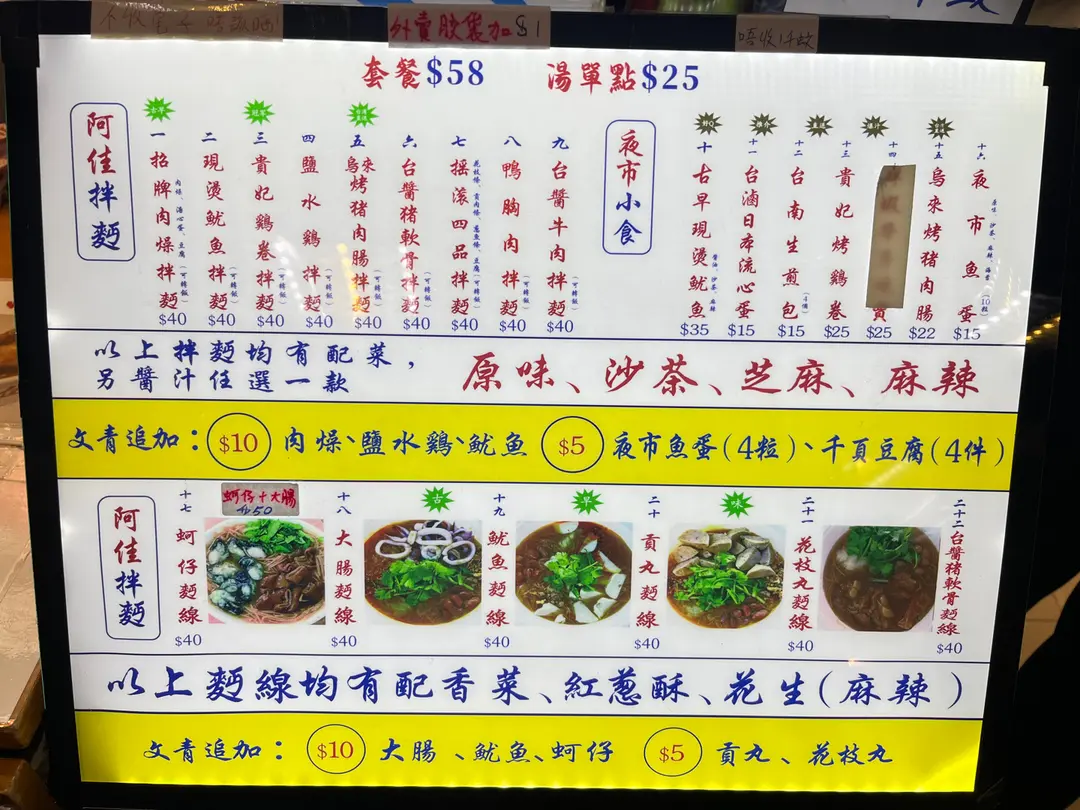 外賣膠袋加$1
唔收千蚊
套餐$58 湯單點$25
阿佳拌麵
一 招牌肉燥拌麵 (可轉飯) $40
二 現燙魷魚拌麵 (可轉飯) $40
三 貴妃鷄卷拌麵 (可轉飯) $40
四 鹽水鷄拌麵 (可轉飯) $40
五 烏來烤猪肉腸拌麵 (可轉飯) $40
六 台醬猪軟骨拌麵 (可轉飯) $40
七 摇滚四品拌麵 (可轉飯) $40
八 鴨胸肉拌麵 (可轉飯) $40
九 台醬牛肉拌麵 (可轉飯) $40
夜市小食
十 古早現燙魷魚 $35
十一 台滷日本流心蛋 $15
十二 台南生煎包 (4個) $15
十三 貴妃烤鷄卷 $25
十四 $25
十五 烏來烤猪肉腸 $22
十六 夜市魚蛋 (10粒) $15
以上拌麵均有配菜，
另醬汁任選一款
原味、沙茶、芝麻、麻辣
文青追加： $10 肉燥、鹽水鷄、魷魚 $5 夜市魚蛋(4粒)、千頁豆腐(4件)
阿佳拌麵
十七 蚵仔麵線 $40
蚵仔+大腸
$50
十八 大腸麵線 $40
古
十九 魷魚麵線 $40
早
二十 貢丸麵線 $40
味
二十一 花枝丸麵線 $40
二十二 台醬猪軟骨麵線 $40
以上麵線均有配香菜、紅蔥酥、花生(麻辣)
文青追加： $10 大腸、魷魚、蚵仔 $5 貢丸、花枝丸